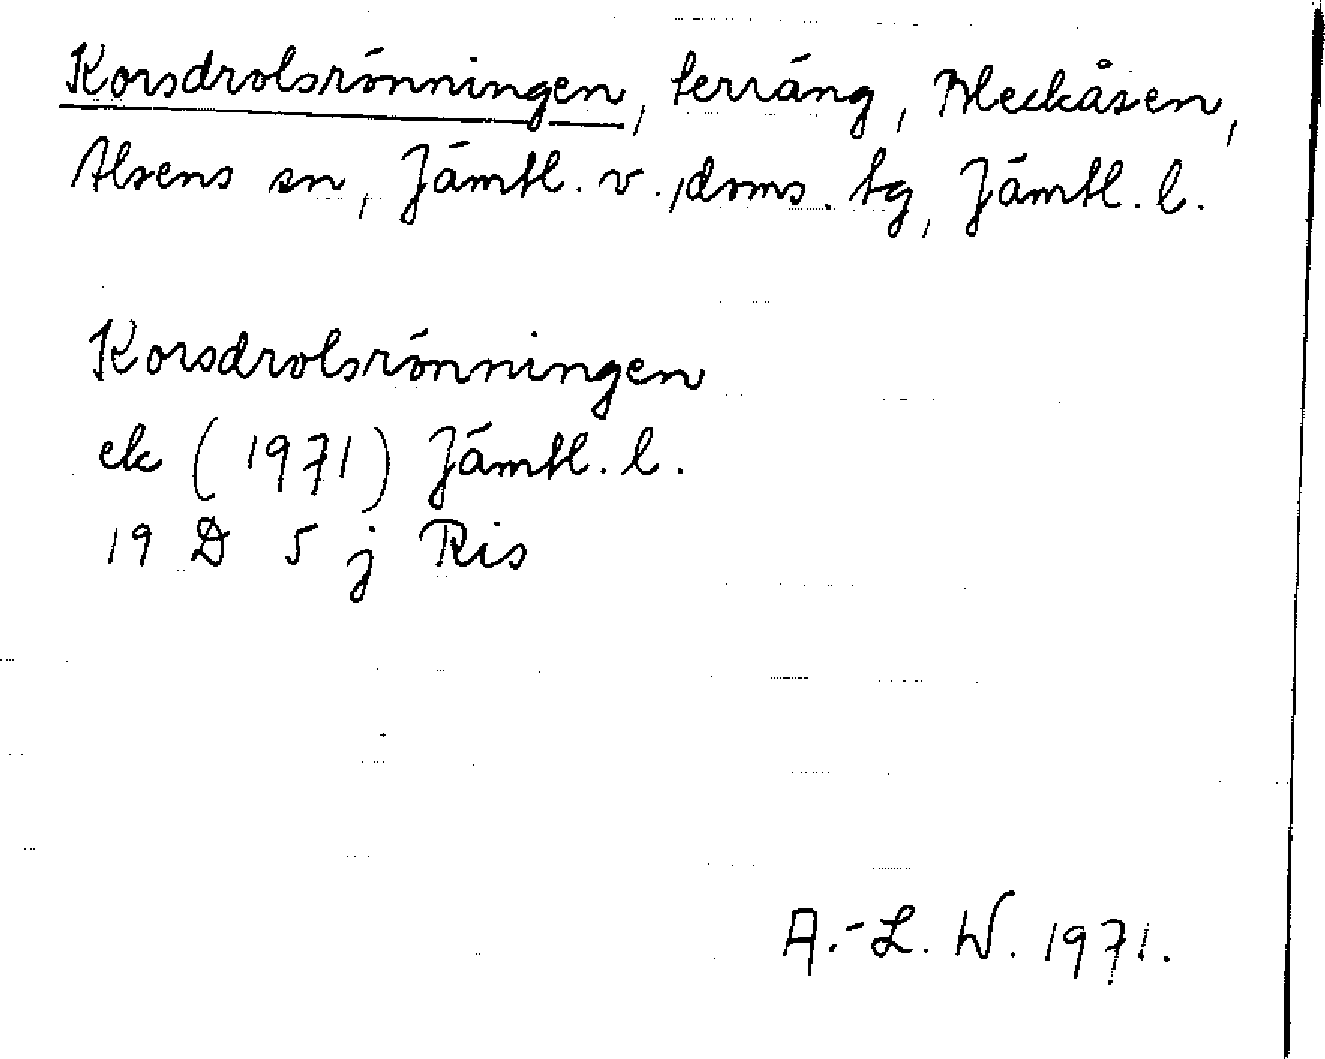 Korsdrolsrönningen, terräng, Bleckåsen,
Alsens sn, Jämtl. v., doms. tg, Jämtl. l.
Korsdrolsrönningen
ek (1971) Jämtl. l.
19 D 5 j Ris
A.-L. W. 1971.